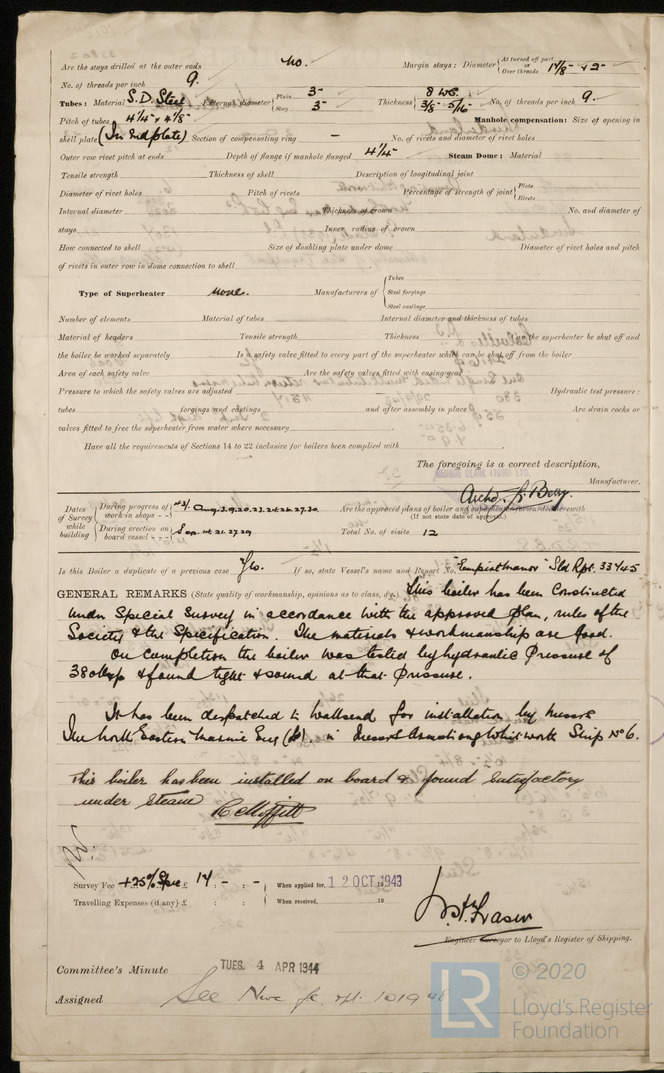 Are the stays drilled at the outer ends No. Margin stays: Diameter { At turned off part or Over threads 1 7/8" + 2"
No. of threads per inch 9.
Tubes: Material S.D. Steel External diameter { Plain 3" Stay 3" Thickness { 8 WG. 3/8" 5/16" No. of threads per inch 9.
Pitch of tubes 4 1/4" x 4 1/8" Manhole compensation: Size of opening in
shell plate (In End plate) Section of compensating ring — No. of rivets and diameter of rivet holes
Outer row rivet pitch at ends Depth of flange if manhole flanged 4 1/4" Steam Dome: Material
Tensile strength Thickness of shell Description of longitudinal joint
Diameter of rivet holes Pitch of rivets Percentage of strength of joint { Plate Rivets
Internal diameter Thickness of crown No. and diameter of
stays Inner radius of crown
How connected to shell Size of doubling plate under dome Diameter of rivet holes and pitch
of rivets in outer row in dome connection to shell
Type of Superheater none. Manufacturers of { Tubes Steel forgings Steel castings
Number of elements Material of tubes Internal diameter and thickness of tubes
Material of headers Tensile strength Thickness Can the superheater be shut off and
the boiler be worked separately Is a safety valve fitted to every part of the superheater which can be shut off from the boiler
Area of each safety valve Are the safety valves fitted with easing gear
Pressure to which the safety valves are adjusted Hydraulic test pressure:
tubes forgings and castings and after assembly in place Are drain cocks or
valves fitted to free the superheater from water where necessary
Have all the requirements of Sections 14 to 22 inclusive for boilers been complied with
The foregoing is a correct description,
Manufacturer.
Dates of Survey while building { During progress of work in shops Aug. 3. 9. 20. 23. 24. 26. 27. 30 Are the approved plans of boiler and superheater forwarded herewith
(If not state date of approval.)
During erection on board vessel Sep. 14. 21. 27. 29 Total No. of visits 12
Is this Boiler a duplicate of a previous case Yes. If so, state Vessel's name and Report No. "Empire Manor" Sld Rpt. 33445
GENERAL REMARKS (State quality of workmanship, opinions as to class, &c.) This boiler has been constructed
under Special Survey in accordance with the approved plan, rules of the
Society & the Specification. The materials & workmanship are good.
On completion the boiler was tested by hydraulic pressure of
380 lbs & found tight & sound at that pressure.
It has been despatched to Wallsend for installation by Messrs
The North Eastern Marine Eng (Co). in Messrs Armstrong Whitworth Ship No 6.
This boiler has been installed on board & found satisfactory
under steam
Survey Fee +25% Spec £ 14 : - : - When applied for, 12 OCT 1943
Travelling Expenses (if any) £ : : When received, 19
Fraser
Engineer Surveyor to Lloyd's Register of Shipping.
Committee's Minute TUES. 4 APR 1944
Assigned See Nwc fe rpt. 101948
LR © 2020
Lloyd's Register
Foundation